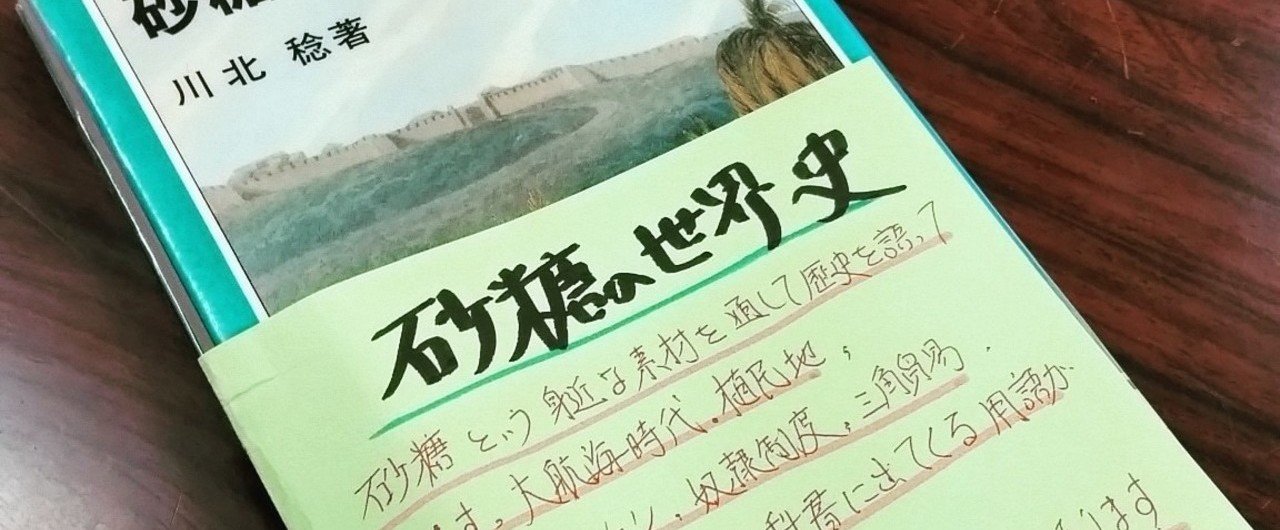 砂糖
川北 稔著
砂糖の世界史
砂糖という身近な素材を通して歴史を語って
ます。大航海時代、植民地、
奴隷制度、三角貿易、
科書に出てくる用語が
ります